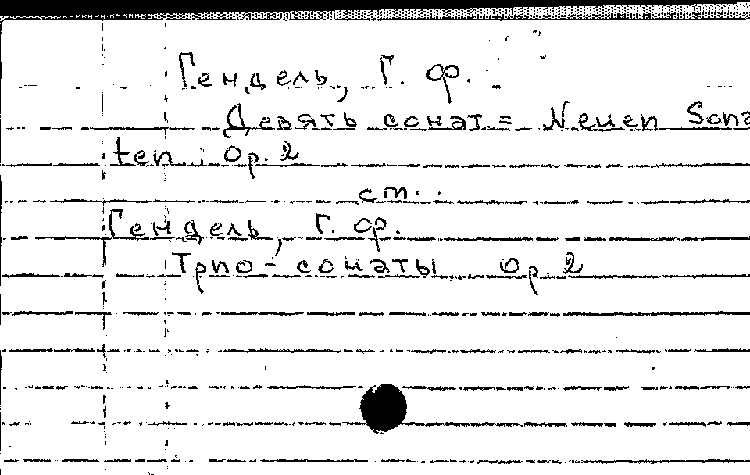 Гендель, Г. Ф.
Девять сонат = Neuen Sona
ten. Op. 2
см.
Гендель, Г. Ф.
Трио-сонаты Op 2